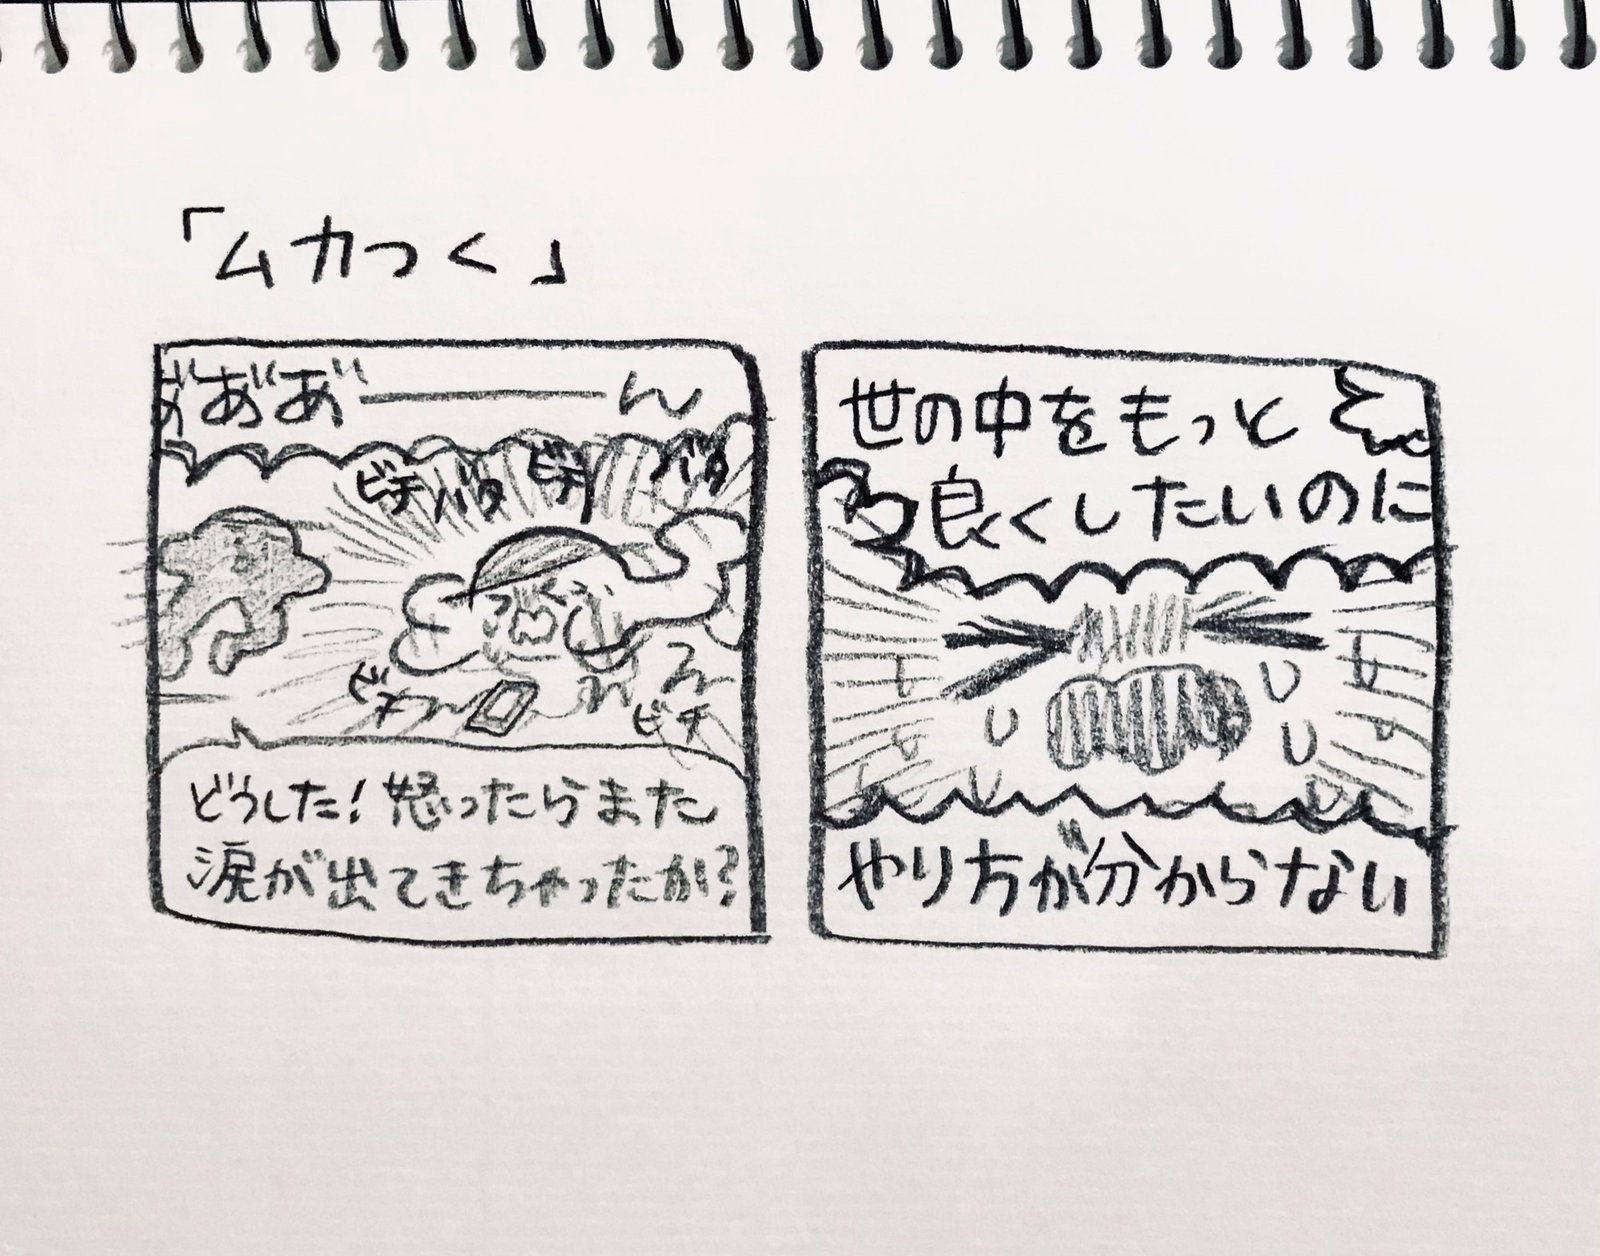 「ムカつく」
あ゙あ゙あ゙ーーん
ビチ バタ ビチ バタ
ビチ
ビチ
どうした!怒ったらまた
涙が出てきちゃったか?
世の中をもっと
良くしたいのに
やり方が分からない